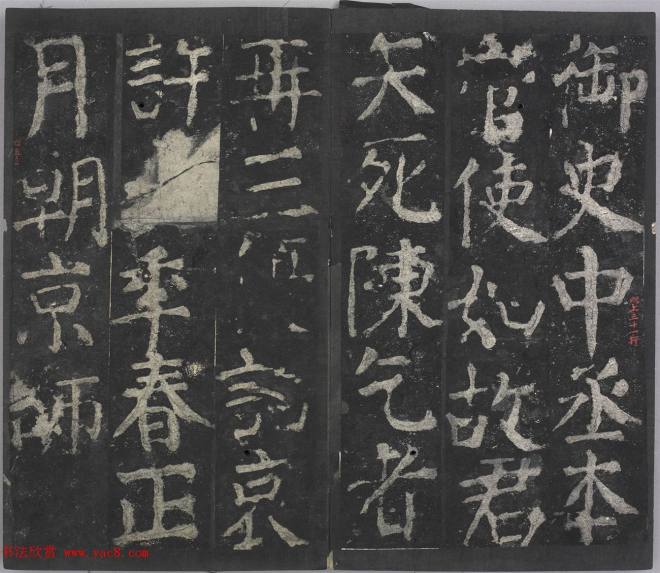 御史中丞本
官使如故君
矢死陳乞者
再三詔哀
許年春正
月朝京師
以上三十一行
书法欣赏 www.yac8.com